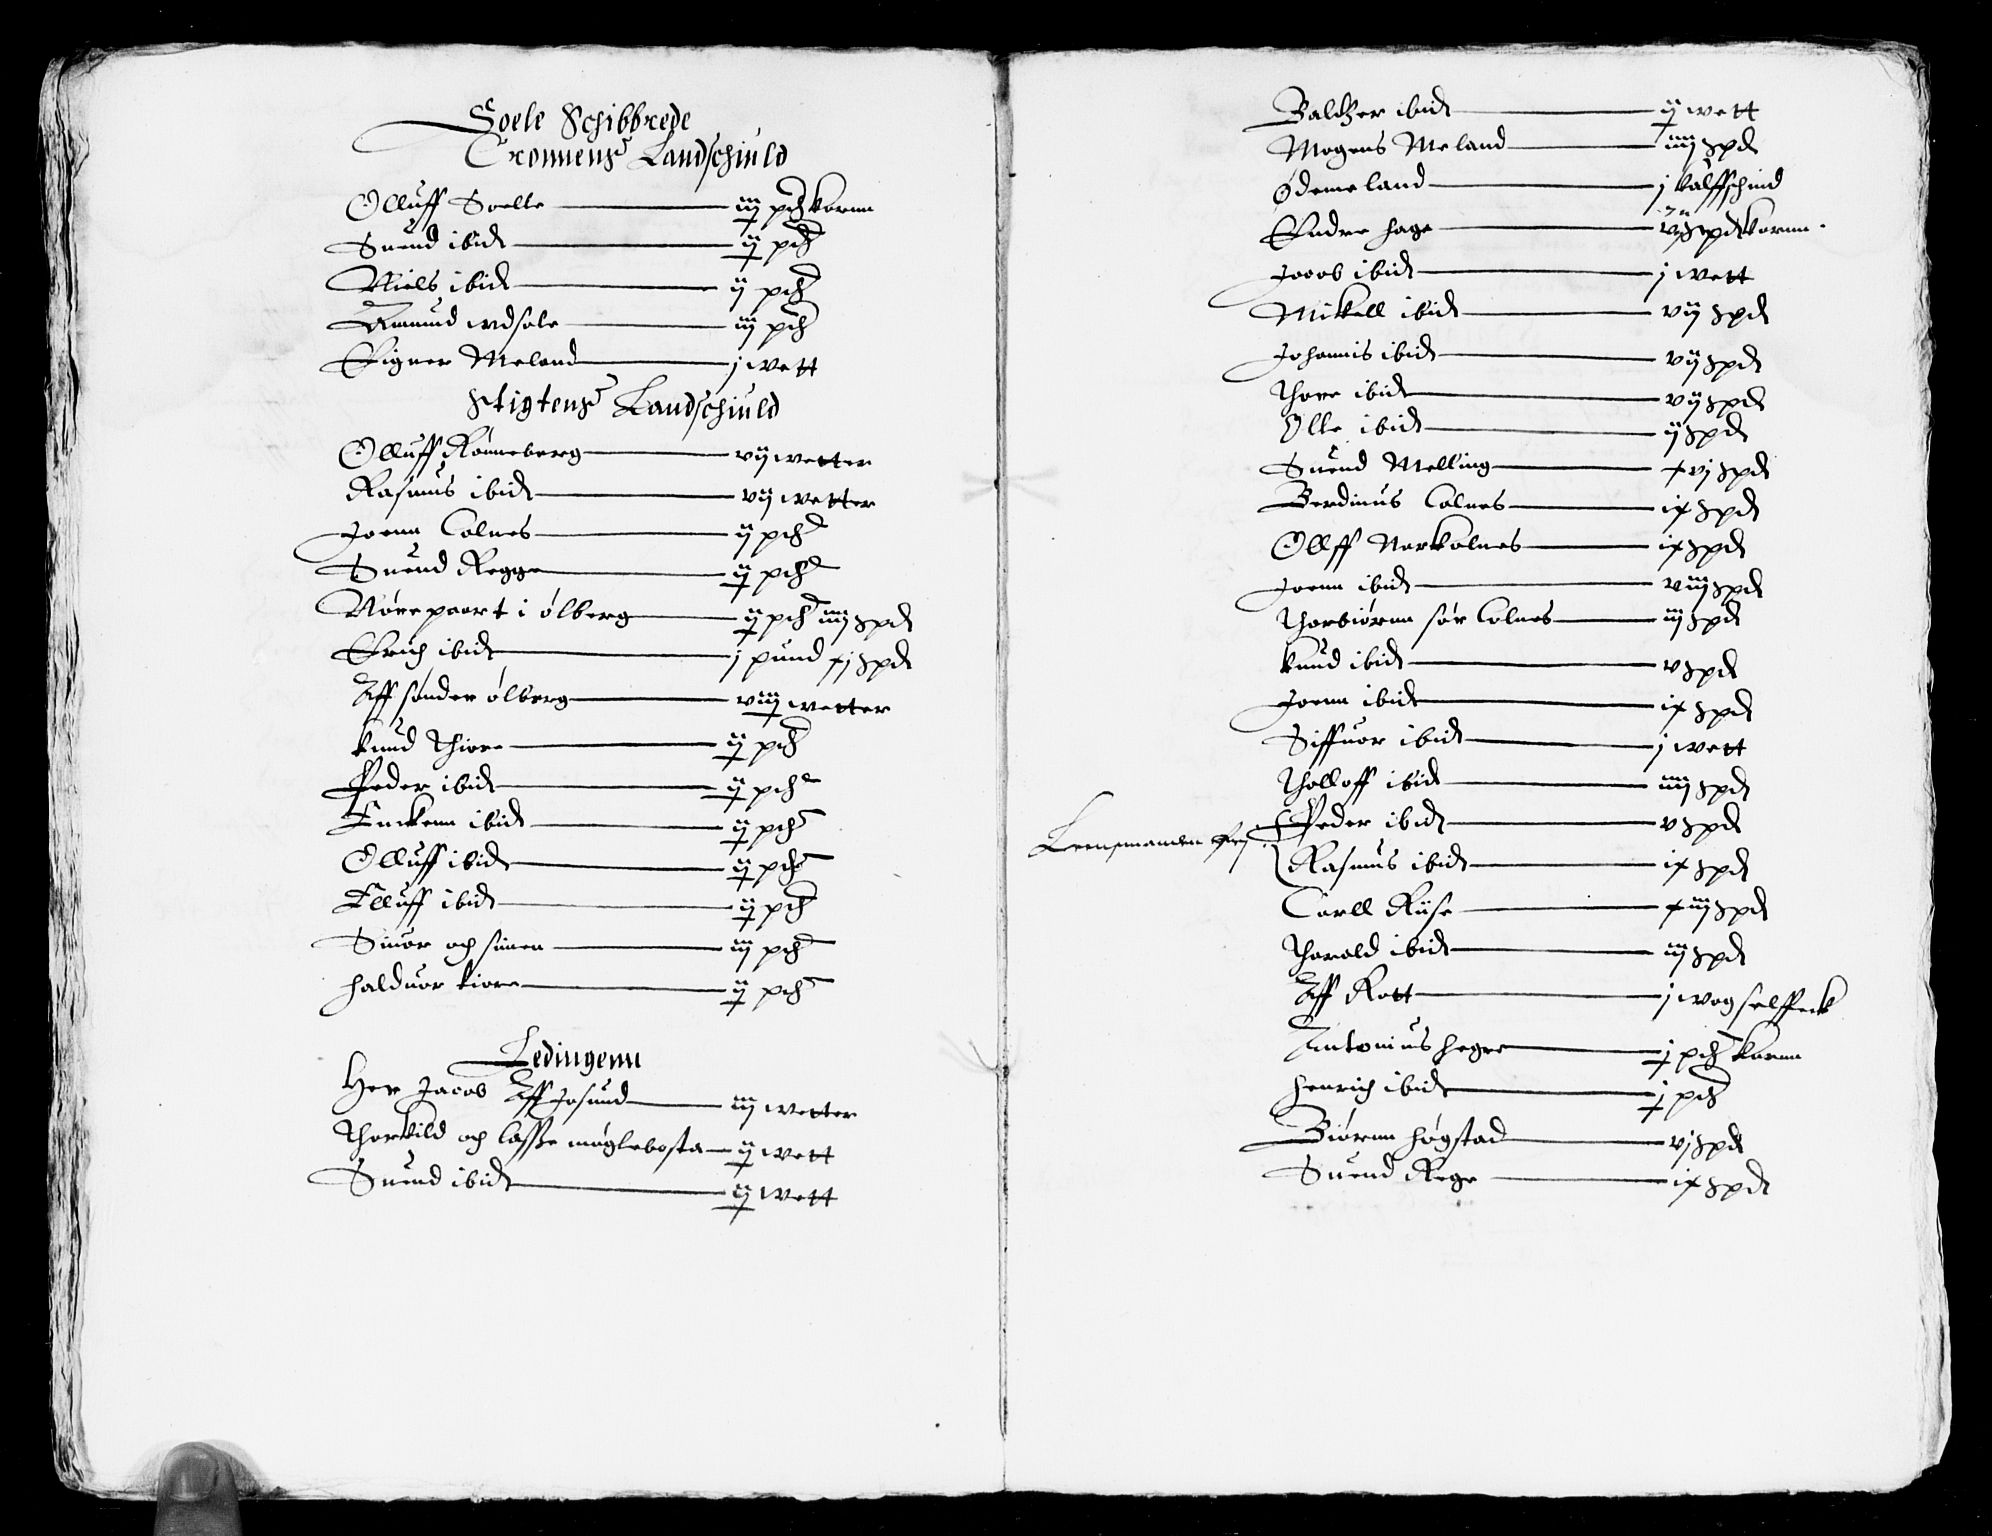 Soele Schibbrede
Cronnens Landschiuld
Olluff Soelle iij pd kornn
Suend ibid ij pd
Niels ibid ij pd
Amund udsole iij pd
Eigner Meland j wett
Stigtens Landschiuld
Olluff Rønneberg vij wetter
Rasmus ibid vij wetter
Joenn Colnes ij pd
Suend Regge ij pd
Nørepaart i ølberg ij pd iiij spd
Erich ibid j pund xj spd
Aff sønder ølberg viij wetter
knud Thiore ij pd
Peder ibid ij pd
Enckenn ibid ij pd
Olluff ibid ij pd
Elluff ibid ij pd
Siuor och simen iij pd
halduor kiore ij pd
Ledingenn
Her Jacob Aff Josund iij wetter
Thorkild och lasse møglebosta ij wett
Suend ibid ij wett
Baltzer ibid ij wett
Mogens Meland iiij spd
Ødemeland j kalffschind
Endre hage spd kornn
Jacob ibid j wett
Mickell ibid vij spd
Johannis ibid vij spd
Thore ibid vij spd
Olle ibid ij spd
Suend Melling xvj spd
Berdinus Colnes ix spd
Olff Norkolnes ix spd
Joenn ibid viij spd
Thorbiørnn sør Colnes iij spd
knud ibid v spd
Joenn ibid ix spd
Siffuor ibid j wett
Tholloff ibid iiij spd
Lennsmanden frj Peder ibid v spd
Rasmus ibid ix spd
Carll Riise xiij spd
Thorald ibid iij spd
Aff Rott j wog selffeck
Antonius hegre j pd kornn
henrich ibid j pd
Biørnn høgstad vj spd
Suend Rege ix spd